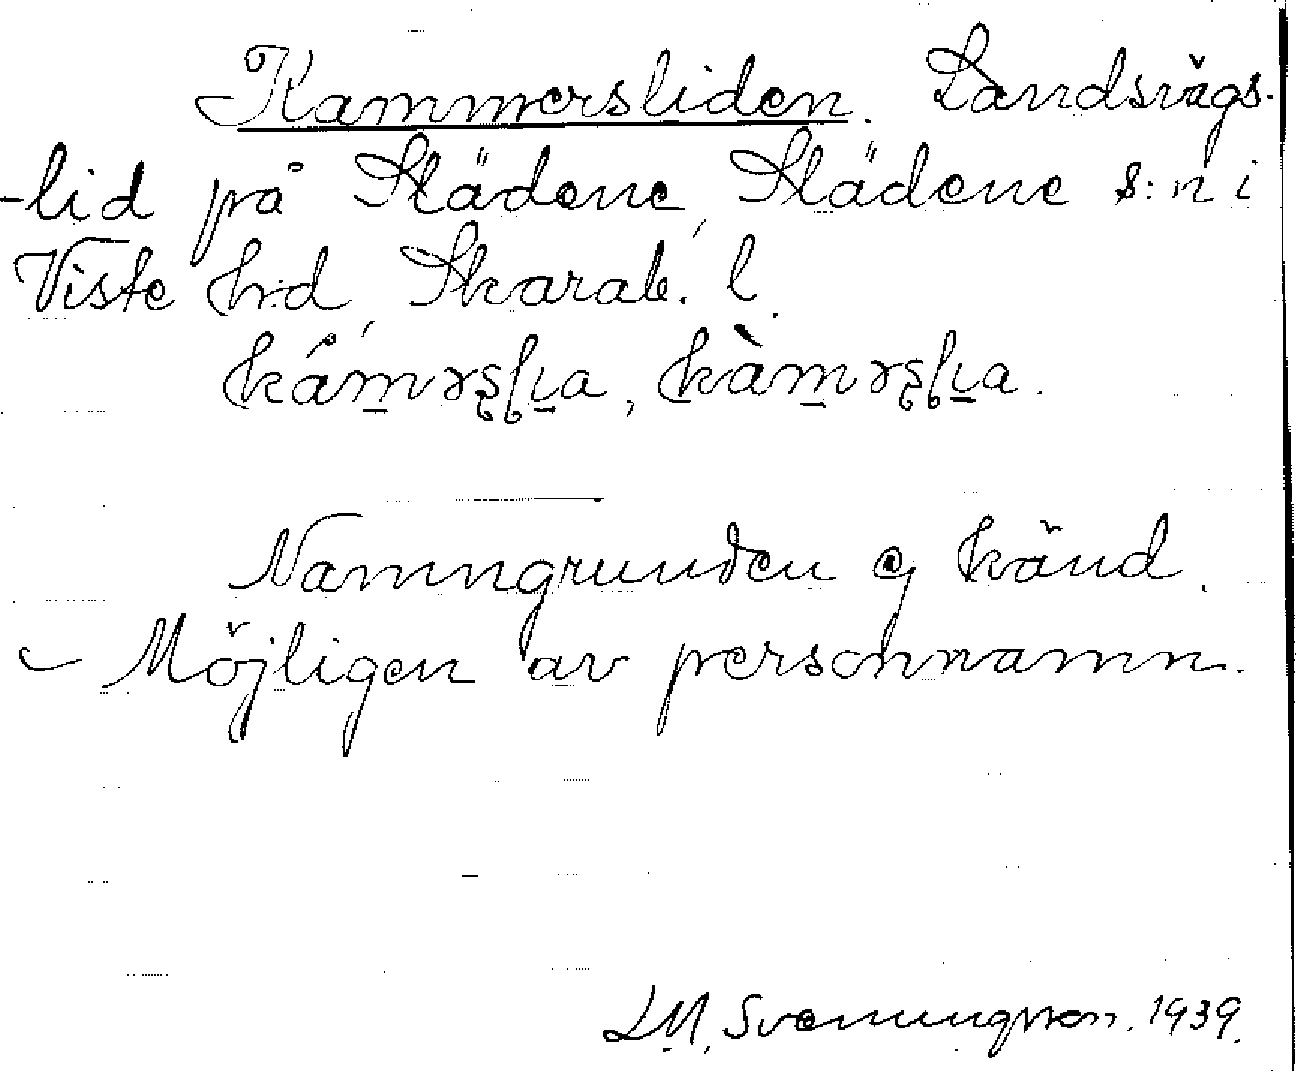 Kammersliden. Landsvägs-
-lid på Slädene, Slädene s:n i
Viste h:d, Skarab. l.
Namngrunden ej känd.
- Möjligen av personnamn.
L.M. Svenungsson. 1939.